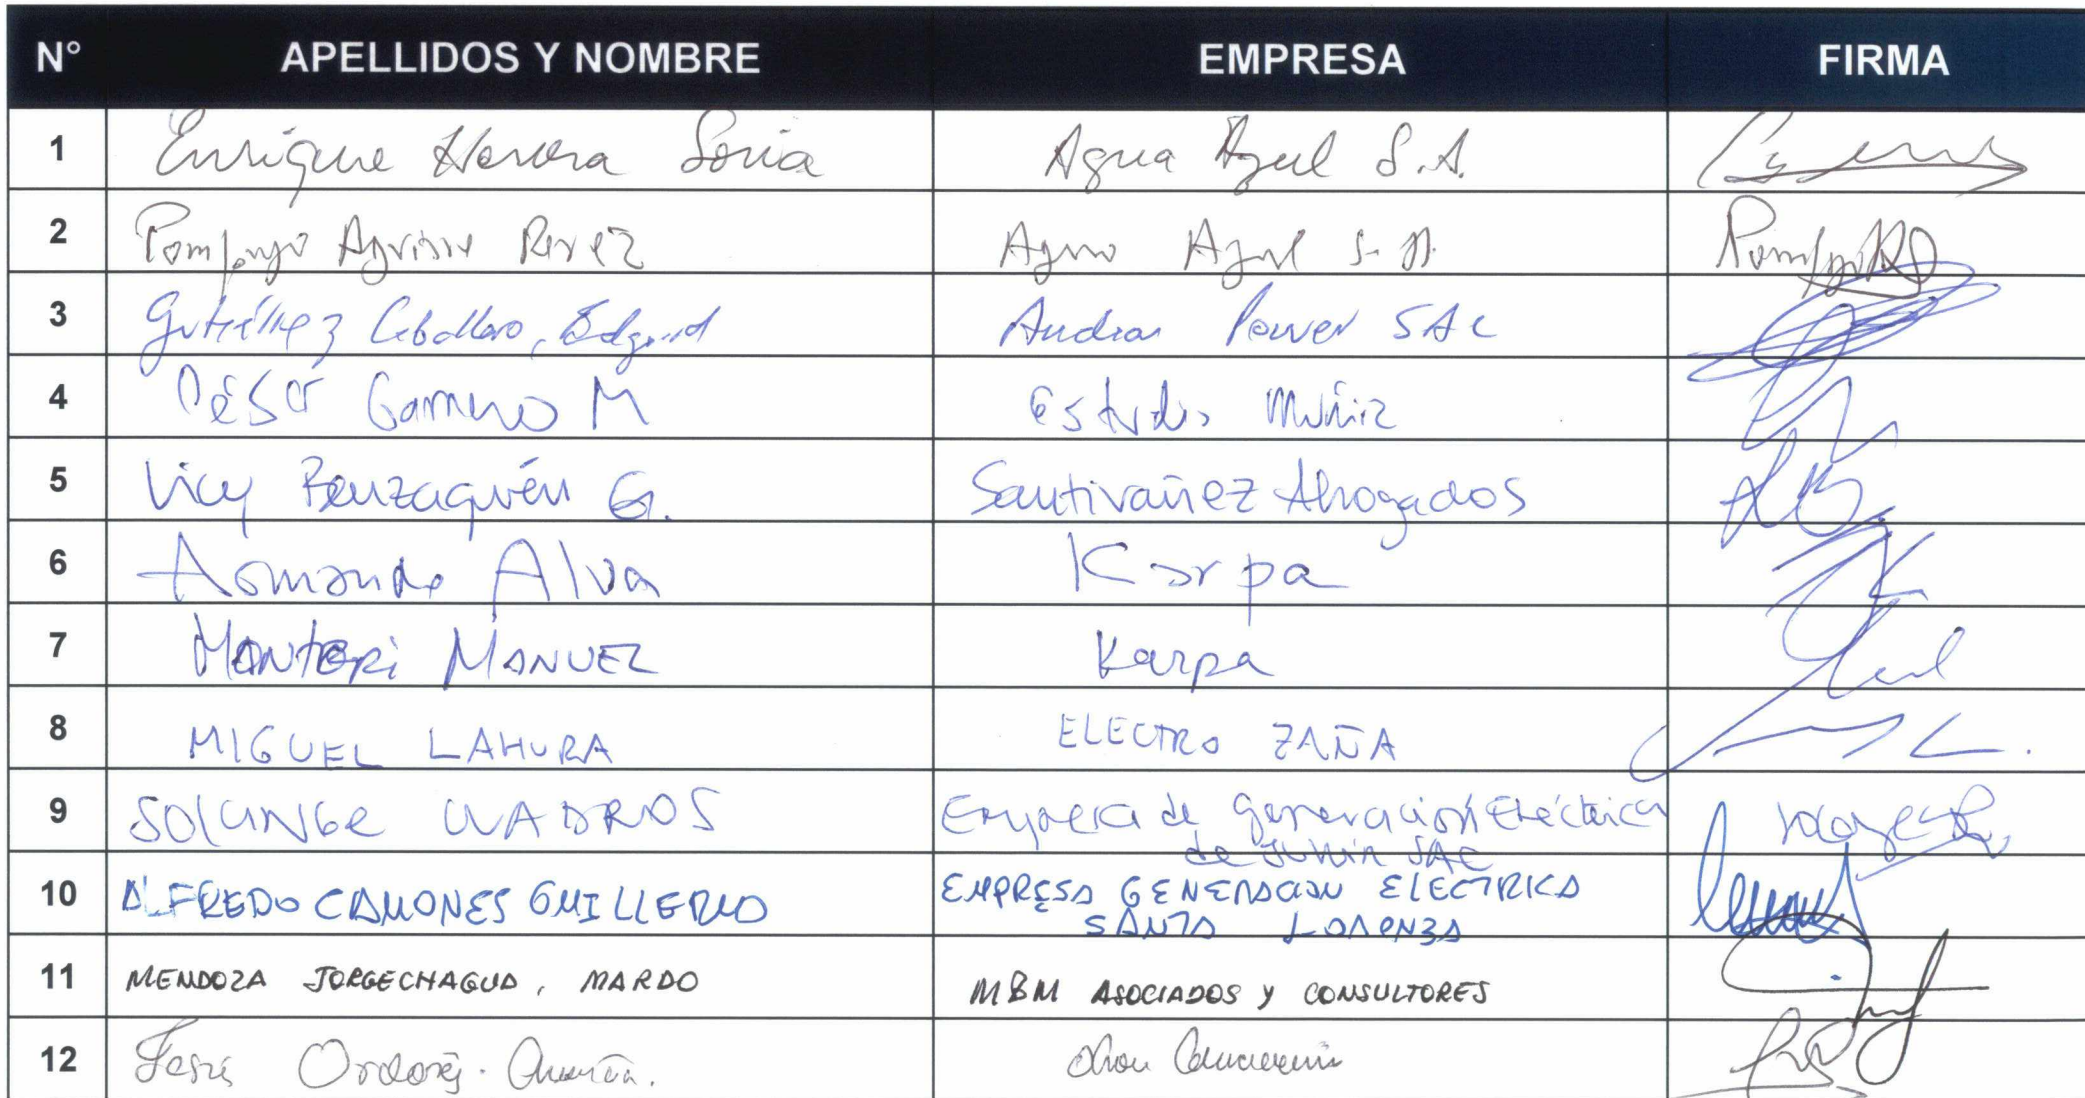 N° APELLIDOS Y NOMBRE EMPRESA FIRMA
1 Enrique Herrera Soria Agua Azul S.A.
2 Pompeyo Aguirre Perez Agua Azul S.A.
3 Gutiérrez Ceballos, Edgard Andean Power SAC
4 César Gamero M Estudio Muñiz
5 Vicy Benzaquén G. Santivañez Abogados
6 Armando Alva Karpa
7 MANUEL Karpa
8 MIGUEL LAHURA ELECTRO ZAÑA
9 SOLANGE CUADROS Empresa de Generación Eléctrica
de Junin SAC
10 ALFREDO CAMONES GUILLERMO EMPRESA GENERACION ELECTRICA
SANTA LORENZA
11 MENDOZA JORGECHAGUA, MARDO M&M ASOCIADOS Y CONSULTORES
12 Ordoñez